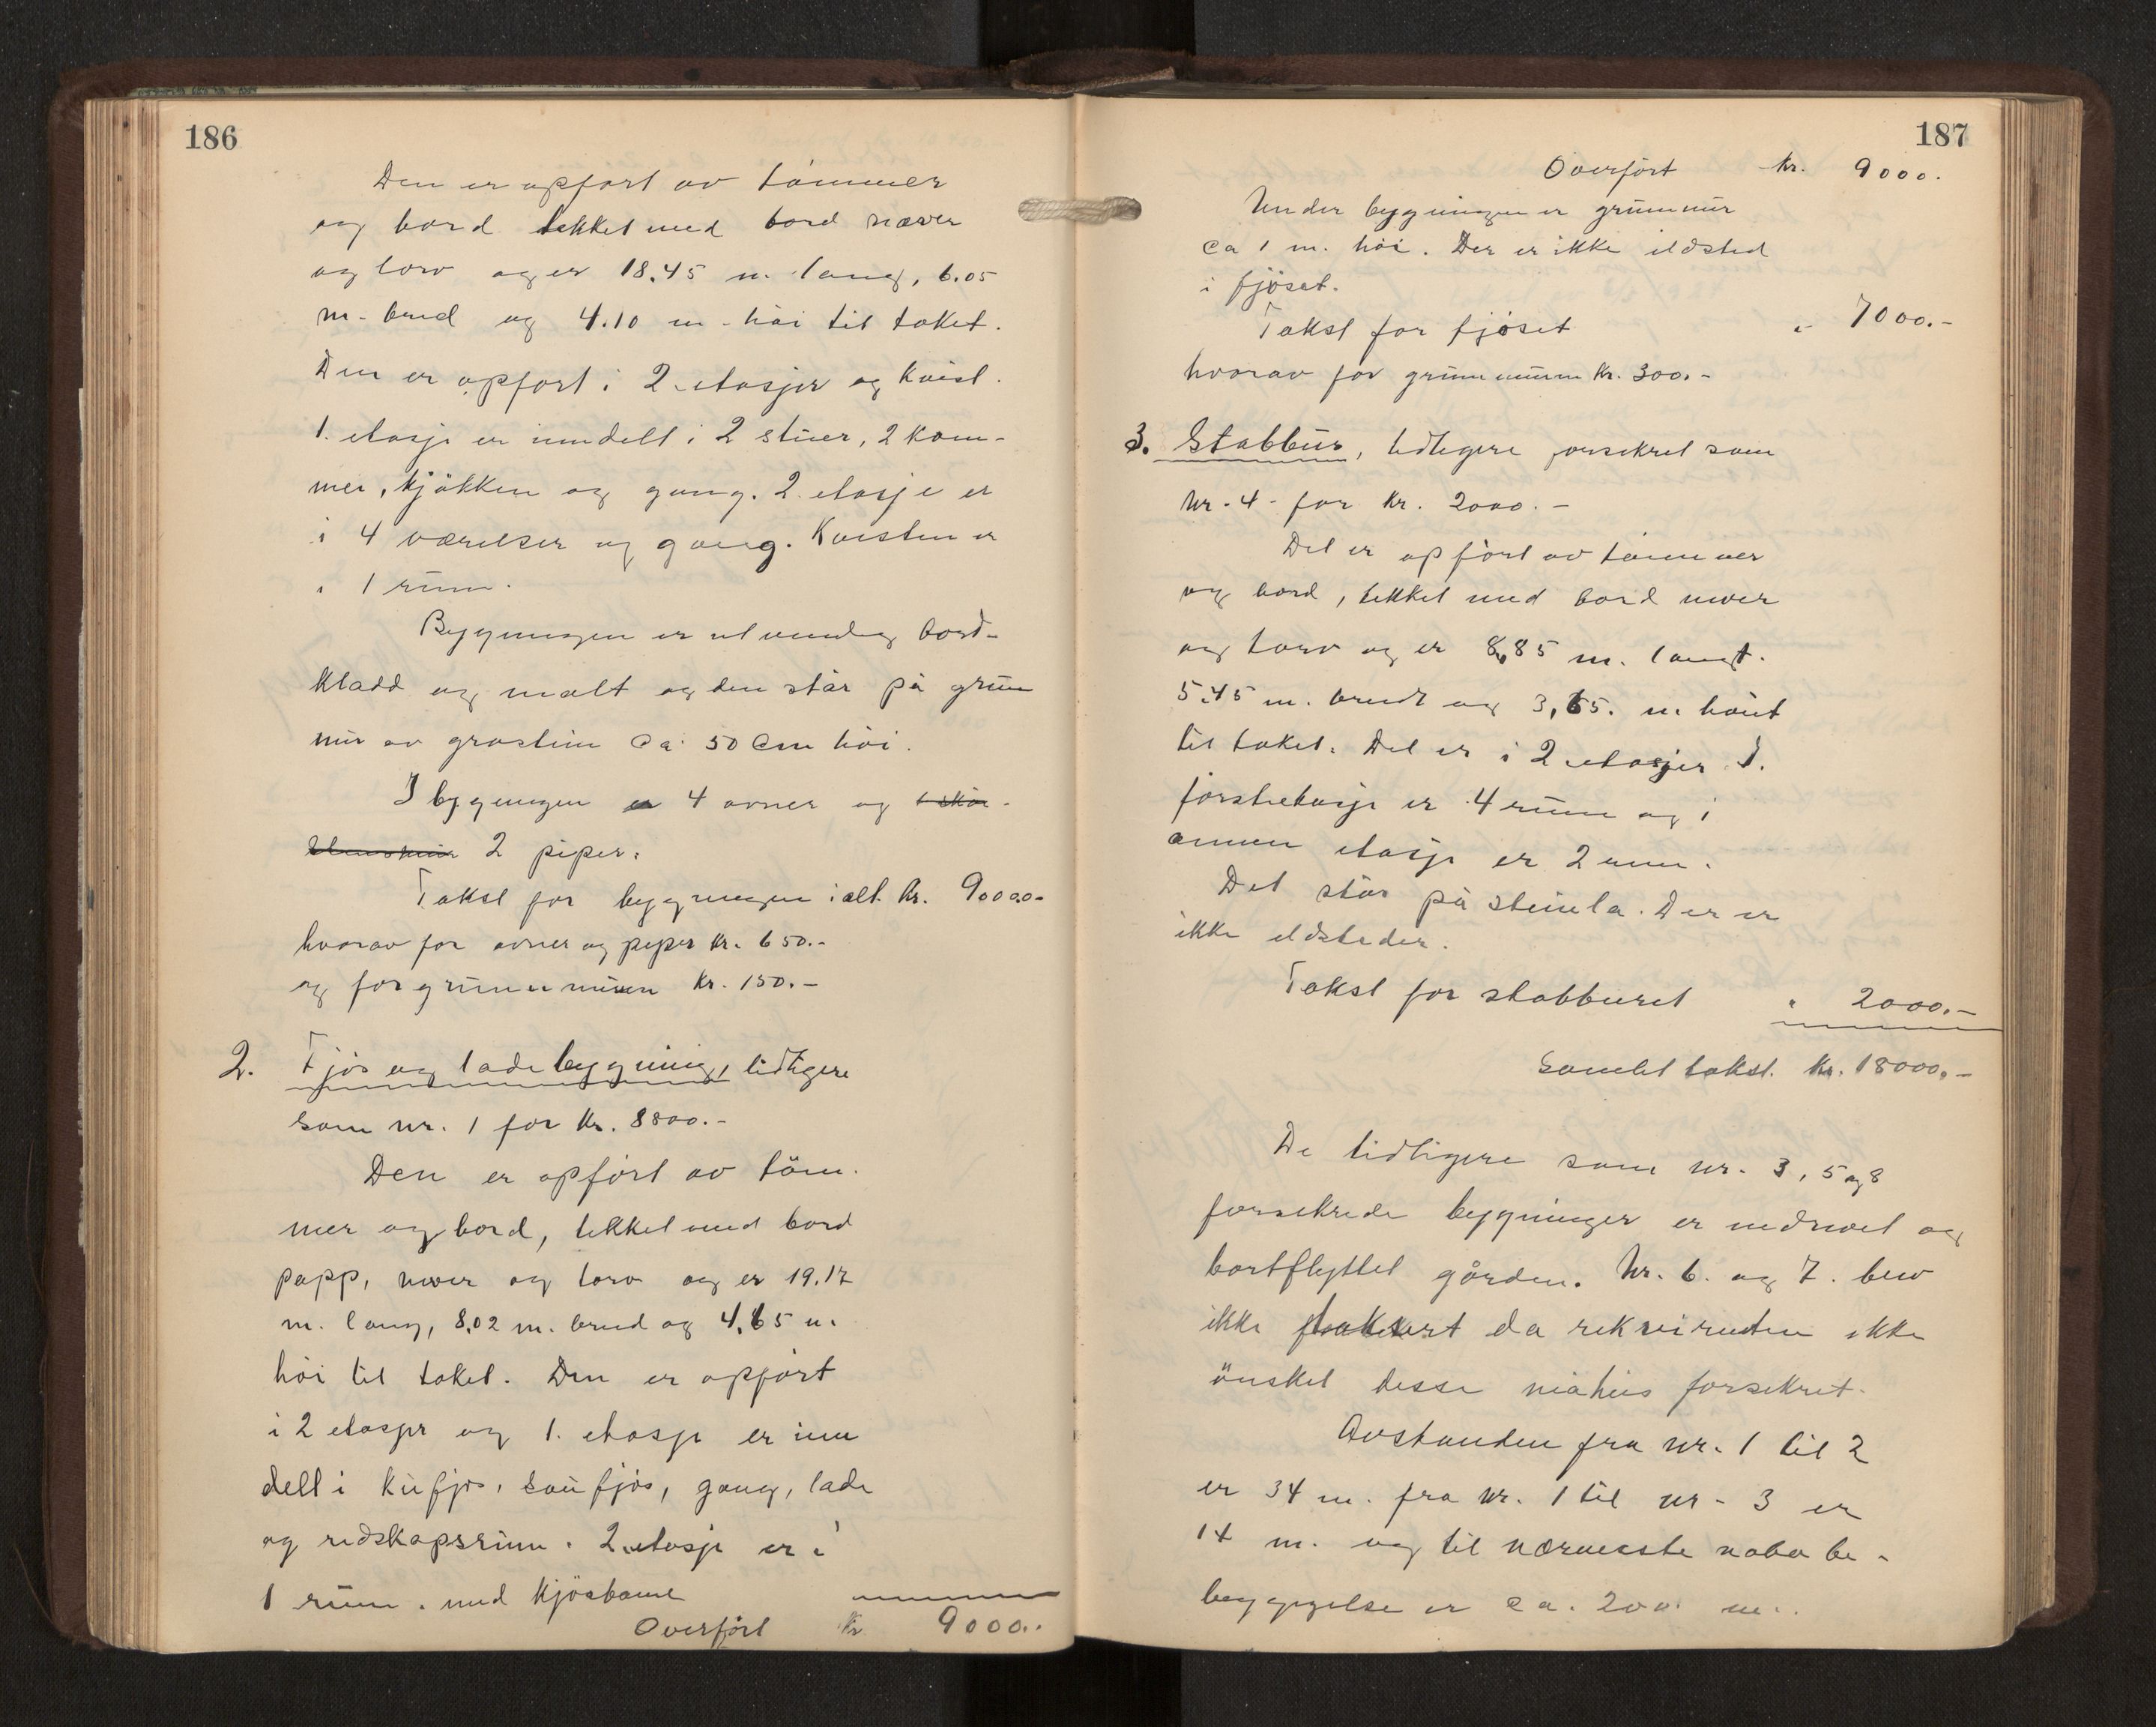 186
Den er opført av tømmer
og bord tekket med bord næver
og torv og er 18.45 m. lang, 6.05
m. bred og 4.10 m. høi til taket.
Den er opført i 2 etasjer og kvist.
1. etasje er inndelt i 2 stuer, 2 kam-
mer, kjøkken og gang. 2. etasje er
i 4 værelser og gang. Kvisten er
i 1 rum.
Bygningen er utvendig bord-
kladd og malt og den står på grun
mur av grastein ca. 50 cm høi.
I bygningen er 4 ovner og 1 skor-
stensmur 2 piper.
Takst for bygningen ialt kr. 9000.-
hvorav for ovner og piper kr. 650.-
og for grunnmuren kr. 150.-
2. Fjøs og ladebygning, tidligere
som nr. 1 for kr. 8800.-
Den er opført av töm-
mer og bord, tekket med bord
papp, never og torv og er 19.17
m. lang, 8.02 m. bred og 4.65 m.
høi til taket. Den er opført
i 2 etasjer og 1. etasje er inn
delt i kufjøs, saufjøs, gang, lade
og redskapsrum. 2. etasje er i
1 rum. med kjøsbane
Overført Kr 9000.-
187
Overført kr. 9000.
Under bygningen er grunnmur
ca 1 m. høi. Der er ikke ildsted
i fjøset.
Takst for fjøset " 7000.-
hvorav for grunnmuren kr. 300.-
3. Stabbur, tidligere forsikret som
nr. 4 for kr. 2000.-
Det er opført av tømmer
og bord, tekket med bord never
og torv og er 8,85 m. langt.
5.45 m. bredt og 3,65. m høit
til taket. Det er i 2 etasjer I.
første etasje er 4 rum og i
annen etasje er 2 rum.
Det står på steinla. Der er
ikke ildsteder.
Takst for stabburet " 2000.-
Samlet takst. kr. 18000.-
De tidligere som nr. 3, 5 og 8
forsikrede bygninger er nedrevet og
bortflyttet gården. Nr. 6. og 7. blev
ikke taksert da rekvirenten ikke
ønsket disse uthus forsikret.
Avstanden fra nr. 1 til 2
er 34 m. fra nr. 1 til nr. 3 er
14 m. og til nærmeste nabo be-
byggelse er ca. 200 m.